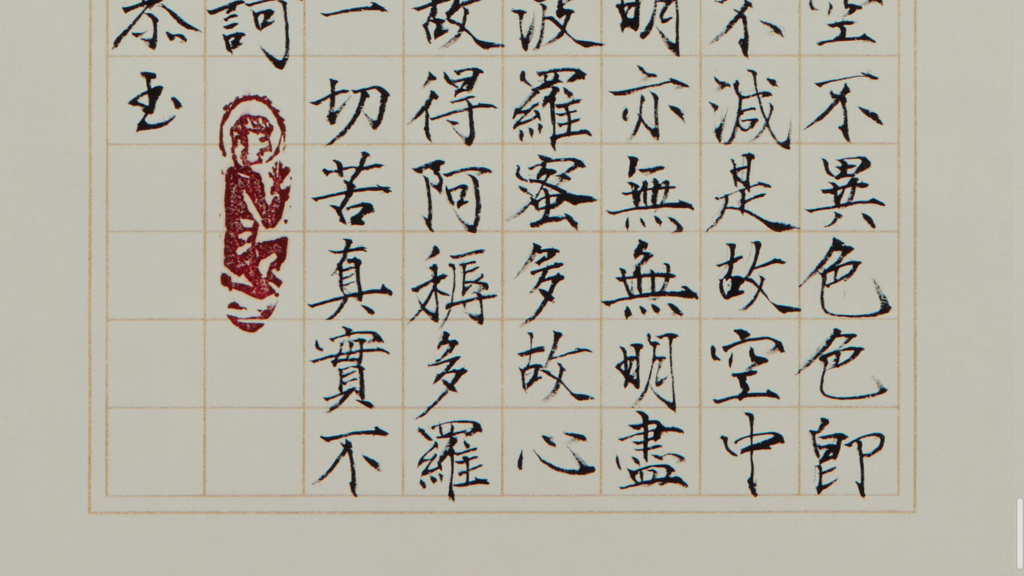 空不異色色即
不減是故空中
明亦無無明盡
波羅蜜多故心
故得阿耨多羅
一切苦真實不
訶
恭玉